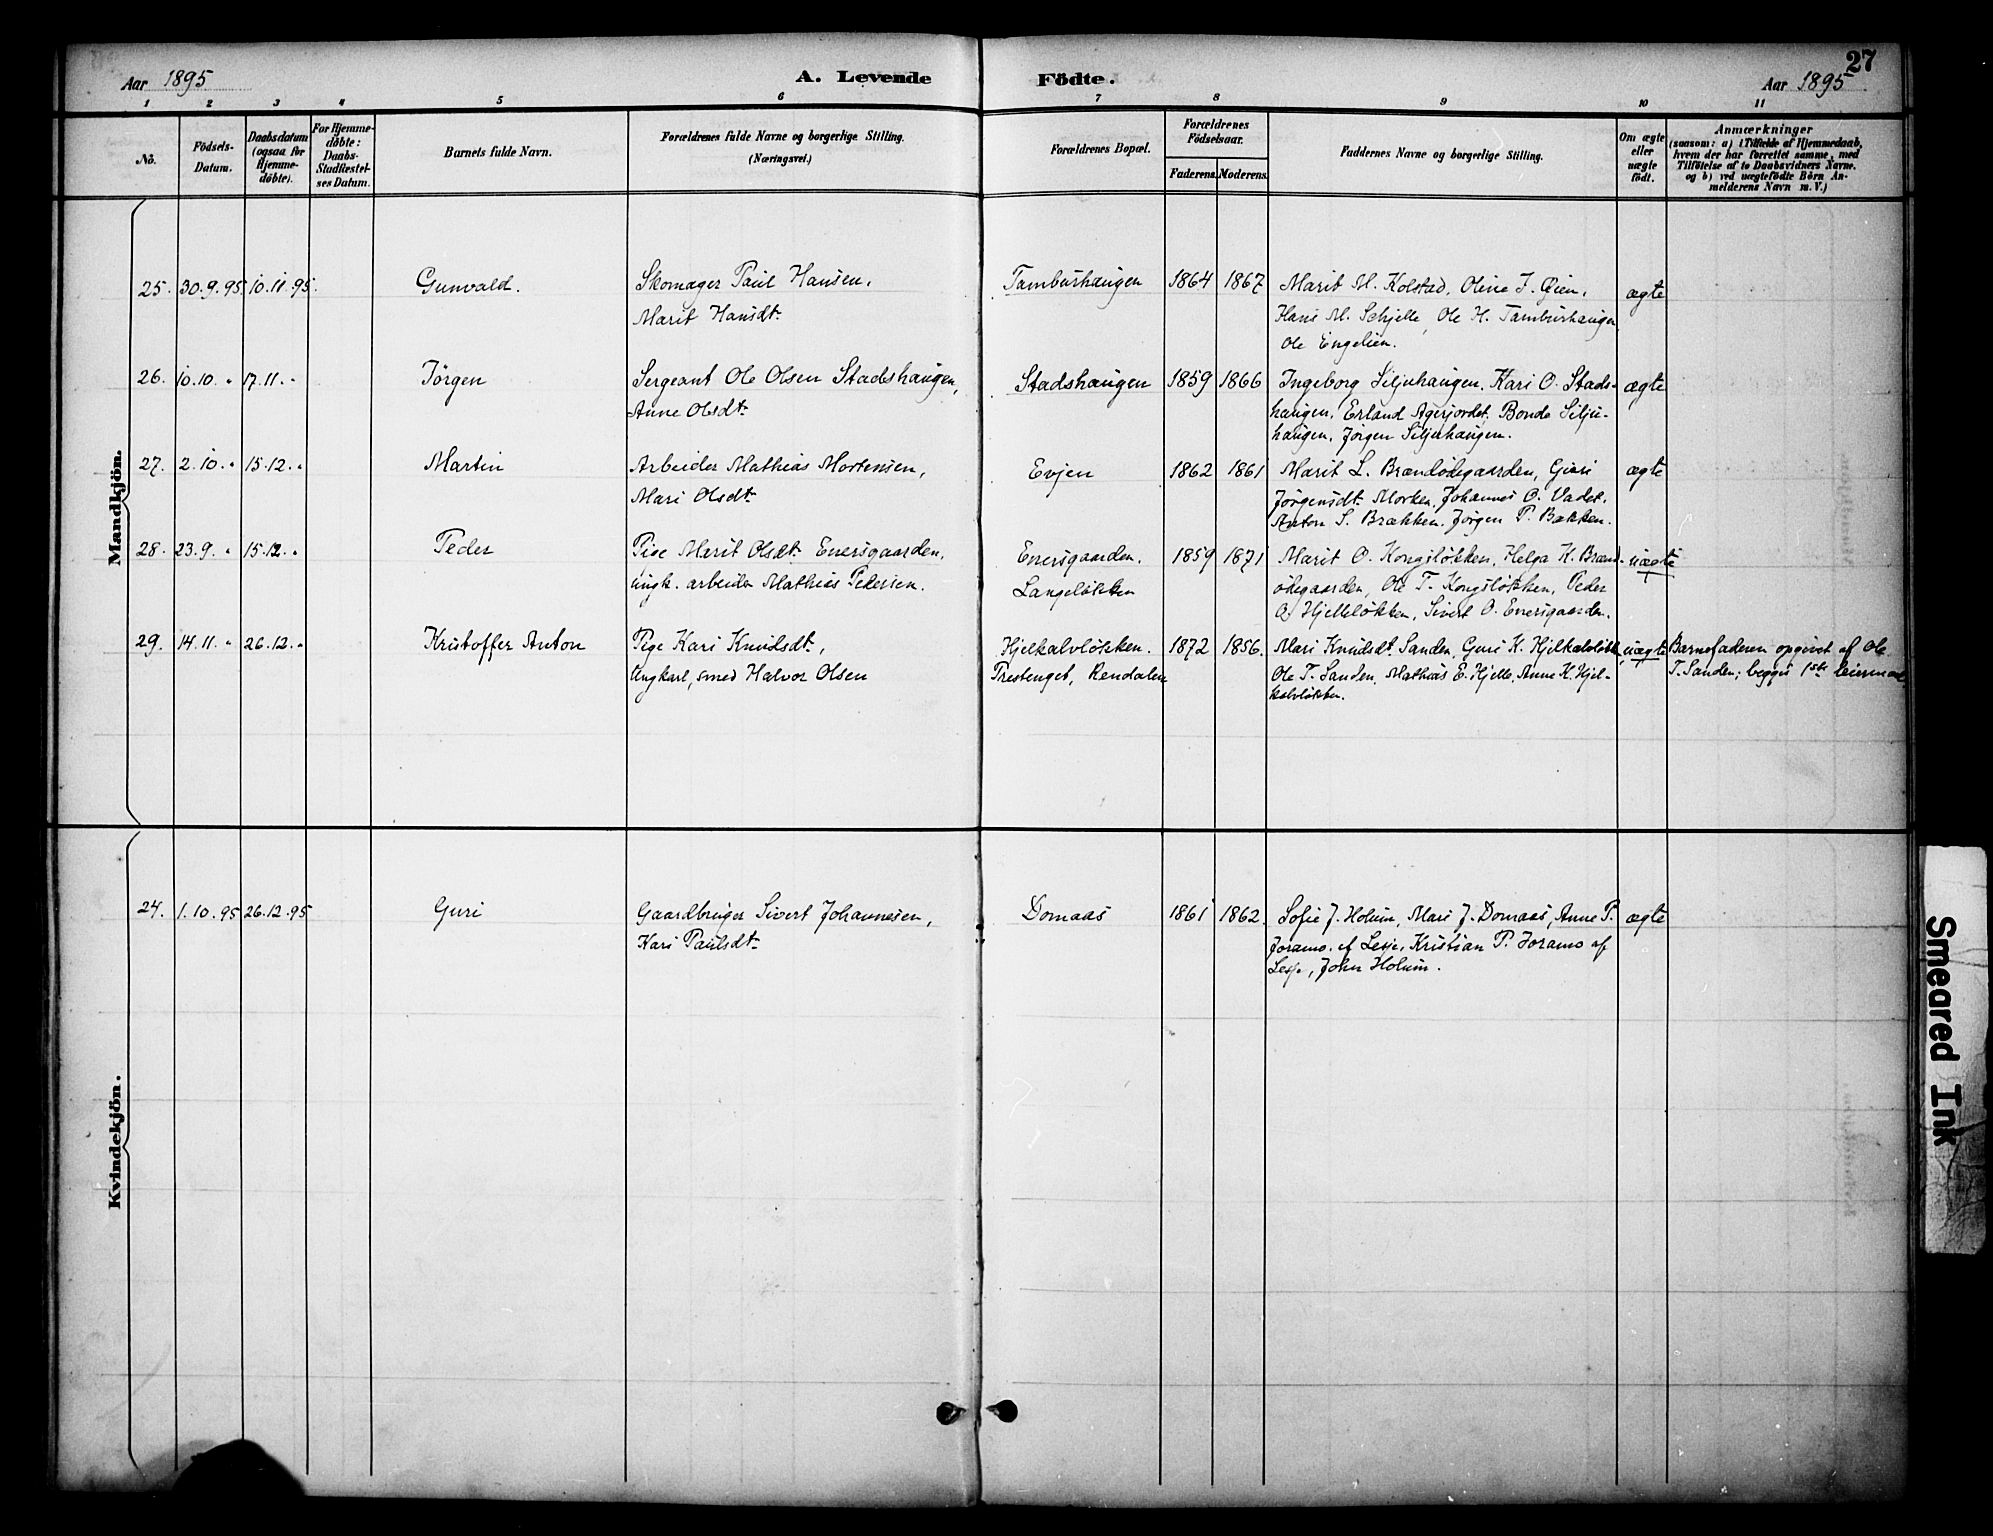 27
Aar 1895
A. Levende
Födte.
Aar 1895
1 2 3 4 5 6 7 8 9 10 11
No.
Födsels-Datum.
Daabsdatum (ogsaa for Hjemme-döbte).
For Hjemme-döbte: Daabs-Stadfæstel-ses Datum.
Barnets fulde Navn.
Forældrenes fulde Navne og borgerlige Stilling.
(Næringsvei.)
Forældrenes Bopæl.
Forældrenes Födselsaar.
Faderens. Moderens.
Faddernes Navne og borgerlige Stilling.
Om ægte eller uægte födt.
Anmærkninger
(saasom: a) i Tilfælde af Hjemmedaab, hvem der har forrettet samme, med Tilföielse af to Daabsvidners Navne. og b) ved uægtefödte Börn An-melderens Navn m. V.)
Mandkjön.
25. 30.9.95 10.11.95. Gunvald. Skomager Paul Hansen, Tamburhaugen 1864 1867 Marit M. Kolstad, Oline J. Gien, ægte
Marit Hansdt. Hans M. Schjelle, Ole H. Tamburhaugen
Ole Engelien.
26. 10.10. " 17.11. " Jörgen Sergeant Ole Olsen Stadshaugen, Stadshaugen 1859 1866 Ingeborg Siljuhaugen, Kari O. Stads- ægte
Anne Olsdt. haugen, Erland Agerjordet, Bonde Silju-
haugen, Jørgen Siljuhaugen.
27. 2.10. " 15.12. " Martin Arbeider Mathias Mortensen, Evjen 1862 1861 Marit L. Brændødegaarden, Guri ægte
Mari Olsdt. Jørgensdt. Morken, Johannes O. Vadet,
Anton S. Brækken, Jørgen P. Bakken.
28. 23.9. " 15.12. " Peder Pige Marit Olsdt. Enersgaarden, Enersgaarden. 1859 1871 Marit O. Kongsløkken, Helga H. Brænd- uægte
ungk. arbeider Mathias Pedersen. Langeløkken ødegaarden, Ole T. Kongsløkken, Peder
O. Hjelleløkken, Sivert O. Enersgaarden.
29. 14.11. " 26.12. " Kristoffer Anton Pige Kari Knudsdt., Hjelkalvløkken. 1872 1856. Mari Knudsdt. Sanden, Guri K. Hjelkalvløkk. uægte Barnefaderen opgivet af Ole
Ungkarl, smed Halvor Olsen Prestenget, Rendalen Ole T. Sanden, Mathias E. Hjelle, Anne K. Hjel- T. Sanden; begges 1ste leiermaal.
kalvløkken.
Kvindekjön.
24. 1.10.95 26.12.95 Guri Gaardbruger Sivert Johannesen, Domaas 1861 1862. Sofie J. Holum, Mari J. Domaas, Anne P. ægte
Kari Paulsdt. Joramo af Lesje, Kristian P. Joramo af
Lesje, John Holum.
Smeared Ink